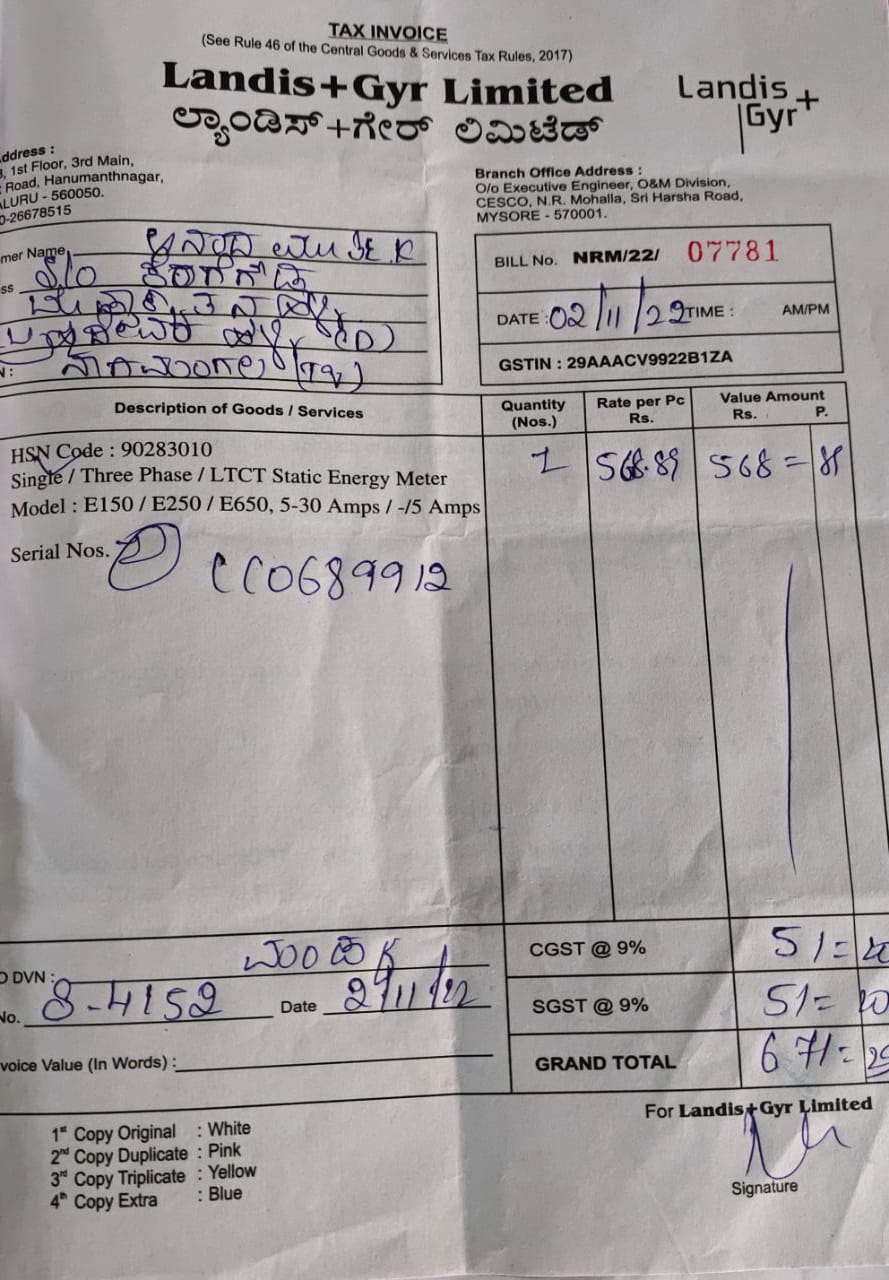 TAX INVOICE
(See Rule 46 of the Central Goods & Services Tax Rules, 2017)
Landis+Gyr Limited
Landis Gyr+
ಲ್ಯಾಂಡಿಸ್+ಗೇರ್ ಲಿಮಿಟೆಡ್
ddress :
, 1st Floor, 3rd Main,
Road, Hanumanthnagar,
ALURU - 560050.
0-26678515
Branch Office Address :
O/o Executive Engineer, O&M Division,
CESCO, N.R. Mohalla, Sri Harsha Road,
MYSORE - 570001.
mer Name
ss S/o
N :
BILL No. NRM/22/ 07781
DATE : 02/11/22 TIME : AM/PM
GSTIN : 29AAACV9922B1ZA
Description of Goods / Services Quantity (Nos.) Rate per Pc Rs. Value Amount Rs. P.
HSN Code : 90283010
Single / Three Phase / LTCT Static Energy Meter 1 568.89 568= 89
Model : E150 / E250 / E650, 5-30 Amps / -/5 Amps
Serial Nos. CC0689912
O DVN :
No. 8-4152 Date 2/11/22
voice Value (In Words) :
CGST @ 9% 51= 20
SGST @ 9% 51= 20
GRAND TOTAL 671=
For Landis+Gyr Limited
Signature
1st Copy Original : White
2nd Copy Duplicate : Pink
3rd Copy Triplicate : Yellow
4th Copy Extra : Blue